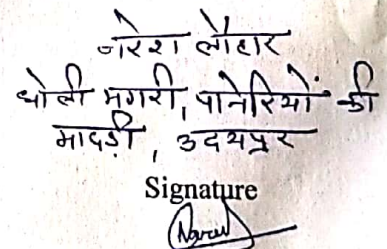 नरेश लौहार
धोली मगरी, पानेरियों की
मादड़ी, उदयपुर
Signature
Naresh